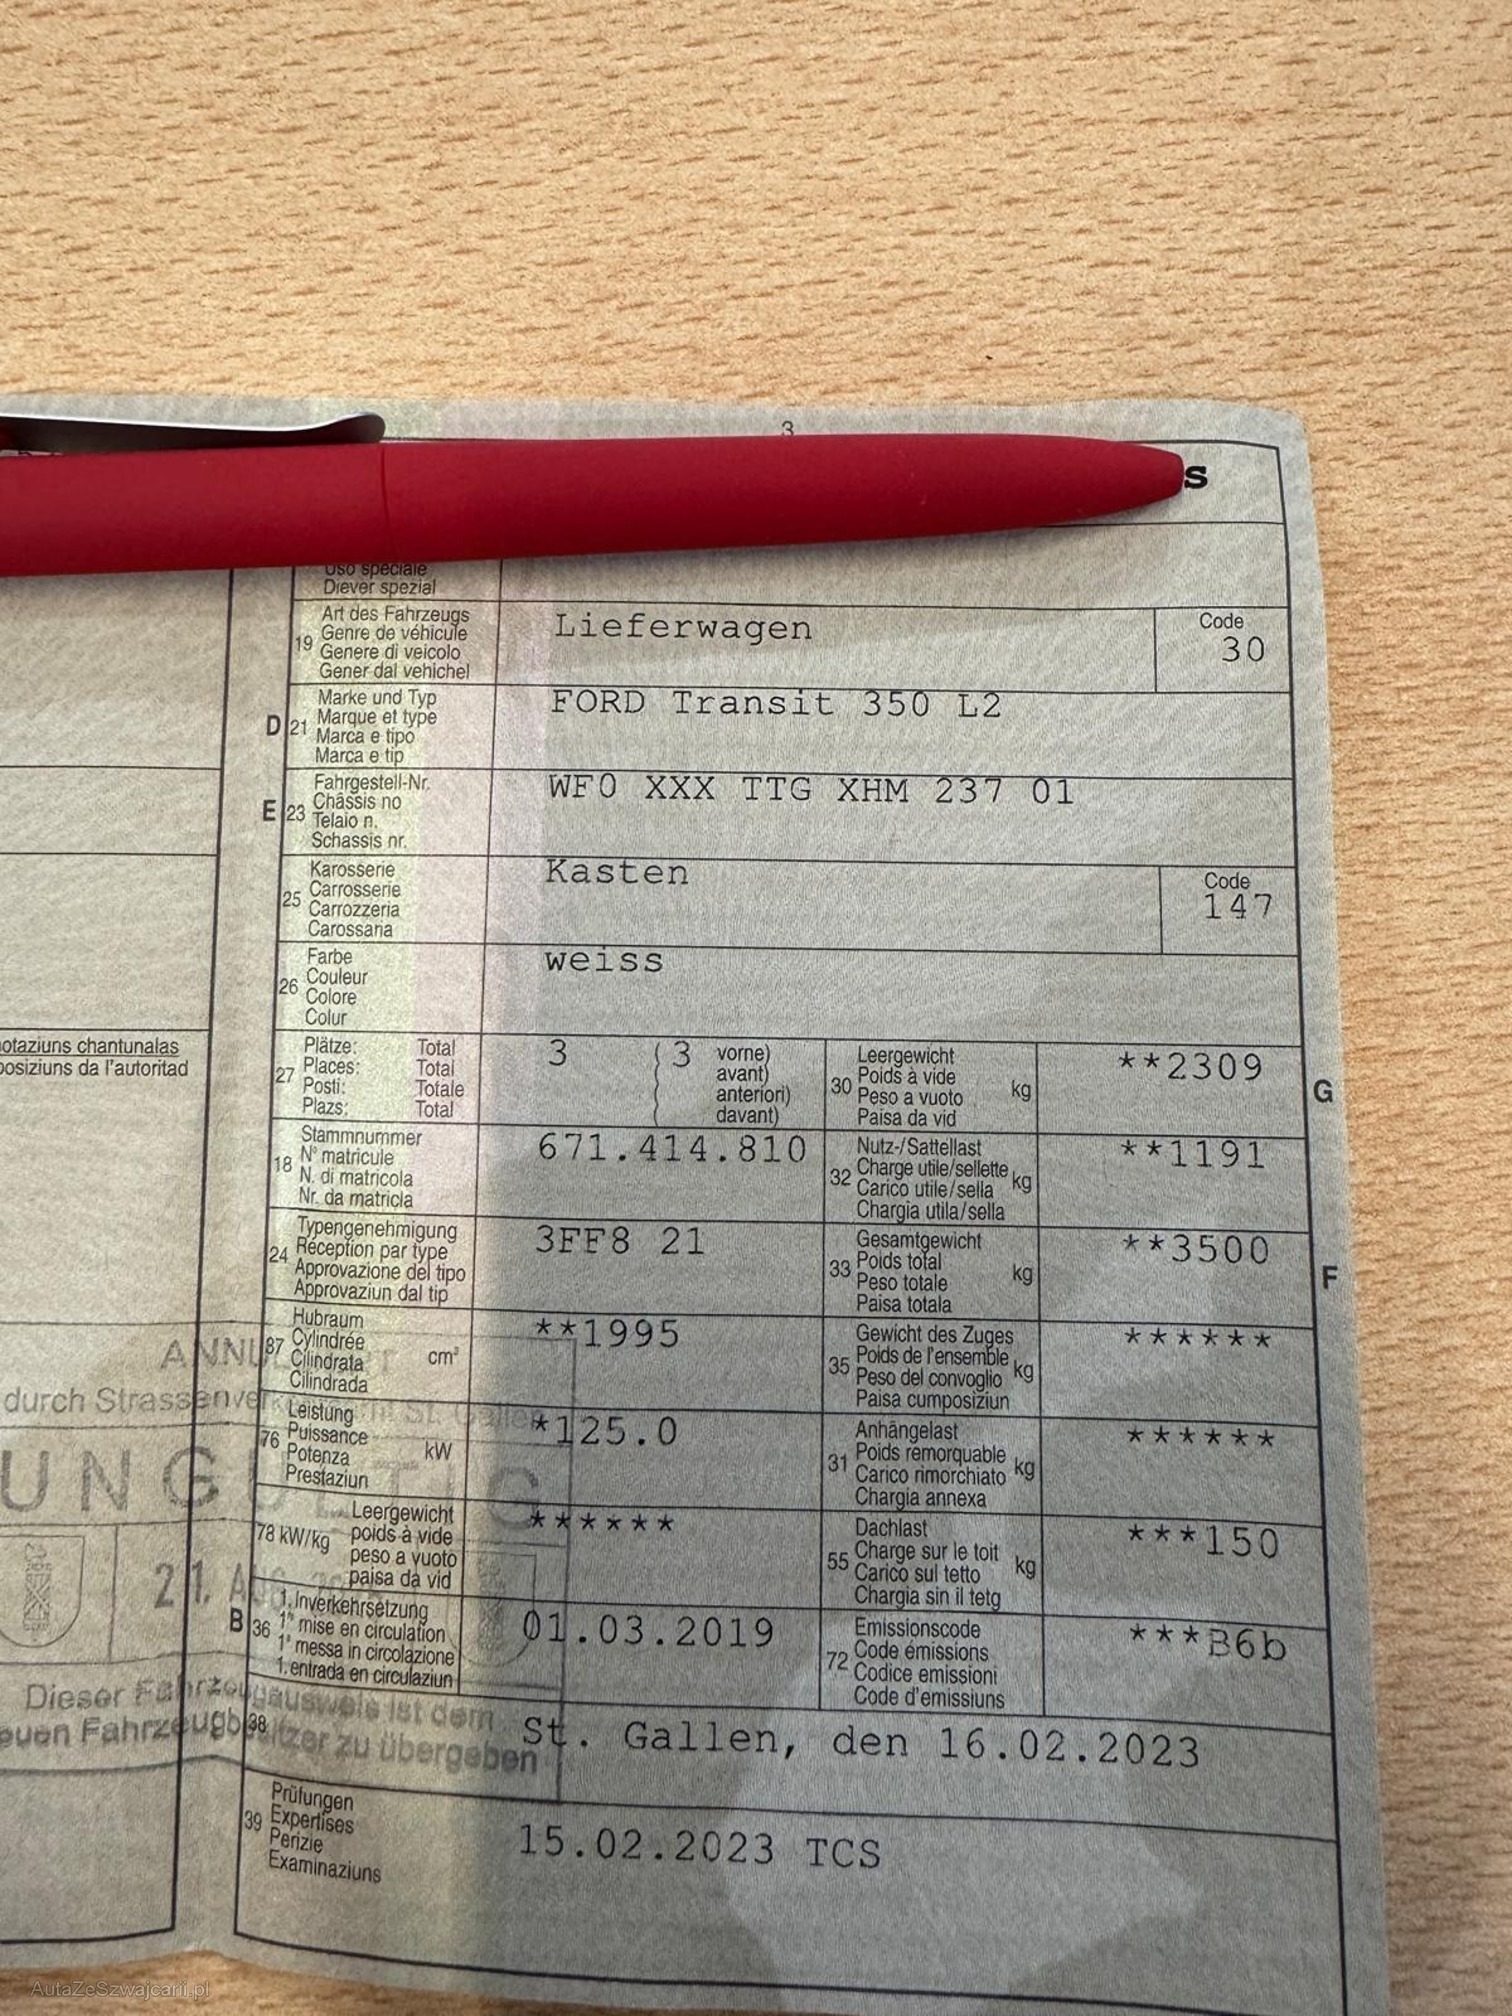 3
s
Uso speciale
Diever spezial
19 Art des Fahrzeugs
Genre de véhicule
Genere di veicolo
Gener dal vehichel
Lieferwagen
Code
30
D 21 Marke und Typ
Marque et type
Marca e tipo
Marca e tip
FORD Transit 350 L2
E 23 Fahrgestell-Nr.
Châssis no
Telaio n.
Schassis nr.
WF0 XXX TTG XHM 237 01
25 Karosserie
Carrosserie
Carrozzeria
Carossaria
Kasten
Code
147
26 Farbe
Couleur
Colore
Colur
weiss
27 Plätze: Total
Places: Total
Posti: Totale
Plazs: Total
3 (3 vorne)
avant)
anteriori)
davant)
30 Leergewicht
Poids à vide
Peso a vuoto kg
Paisa da vid
**2309
G
18 Stammnummer
N° matricule
N. di matricola
Nr. da matricla
671.414.810
32 Nutz-/Sattellast
Charge utile/sellette kg
Carico utile/sella
Chargia utila/sella
**1191
24 Typengenehmigung
Réception par type
Approvazione del tipo
Approvaziun dal tip
3FF8 21
33 Gesamtgewicht
Poids total
Peso totale kg
Paisa totala
**3500
F
37 Hubraum
Cylindrée
Cilindrata cm³
Cilindrada
**1995
35 Gewicht des Zuges
Poids de l'ensemble kg
Peso del convoglio
Paisa cumposiziun
******
76 Leistung
Puissance
Potenza kW
Prestaziun
*125.0
31 Anhängelast
Poids remorquable
Carico rimorchiato kg
Chargia annexa
******
78 kW/kg Leergewicht
poids à vide
peso a vuoto
paisa da vid
******
55 Dachlast
Charge sur le toit
Carico sul tetto kg
Chargia sin il tetg
***150
B 36 1. Inverkehrsetzung
1re mise en circulation
1a messa in circolazione
1. entrada en circulaziun
01.03.2019
72 Emissionscode
Code émissions
Codice emissioni
Code d'emissiuns
***B6b
38
St. Gallen, den 16.02.2023
39 Prüfungen
Expertises
Perizie
Examinaziuns
15.02.2023 TCS
notaziuns chantunalas
posiziuns da l'autoritad
durch Strassenve
St. Gallen
21. AUG
Dieser Fahrzeugausweis ist dem
euen Fahrzeugbesitzer zu übergeben
AutaZeSzwajcarii.pl